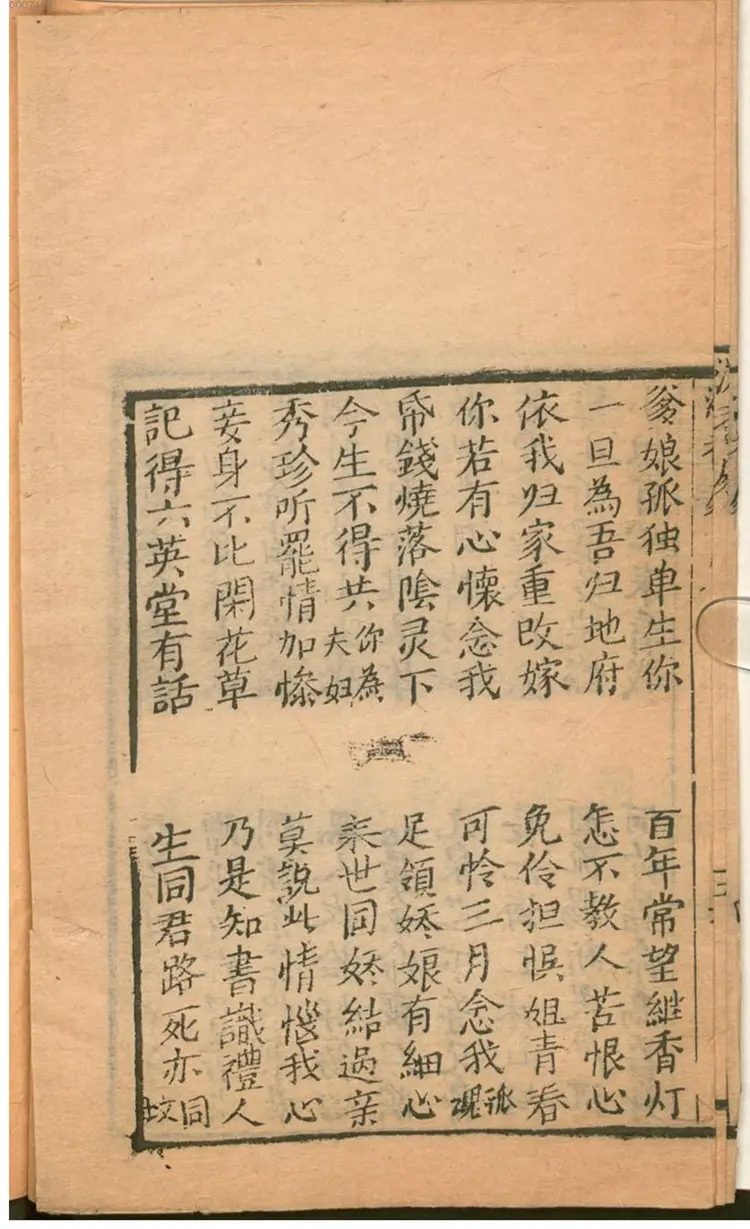 爹娘孤独单生你 百年常望継香灯
一旦為吾归地府 怎不教人苦恨心
依我归家重改嫁 免伶担悮姐青春
你若有心懷念我 可怜三月念我孤魂
帋錢燒落陰灵下 足領娇娘有細心
今生不得共你為夫妇 来世同娇結過亲
秀珍听罷情加惨 莫說此情惱我心
妾身不比閑花草 乃是知書識禮人
記得六英堂有話 生同君路死亦同坟